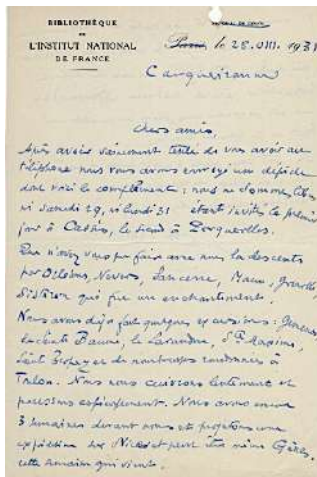 BIBLIOTHÈQUE
DE
L'INSTITUT NATIONAL
DE FRANCE
Paris, le 28. VIII. 193
Carqueiranne
Chers amis,
Après avoir vainement tenté de vous avoir au
téléphone nous vous avons envoyé une dépêche
dont voici le complément : nous ne sommes libres
ni samedi 29, ni lundi 31 étant invités le premier
jour à Cassis, le second à Porquerolles.
Que n'avez vous pu faire avec nous la descente
par Orléans, Nevers, Sancerre, Grenoble
Sisteron qui fut un enchantement.
Nous avons déjà fait quelques excursions :
la Sainte Baume, le Lavandou, Ste Maxime,
Saint Tropez et de nombreuses randonnées à
Toulon. Nous nous lentement et
. Nous avons encore
3 semaines devant nous et projetons une
expédition sur Nice et peut être même Gênes,
cette semaine qui vient.